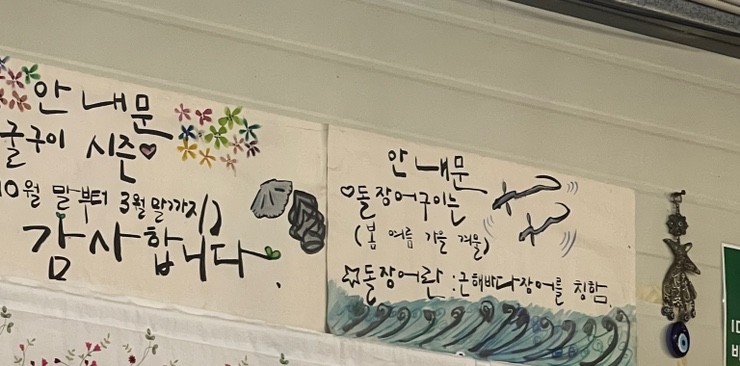 안내문
굴구이 시즌♡
10월 말부터 3월 말까지)
감사합니다.
안내문
♡돌장어구이는
(봄 여름 가을 겨울)
☆돌장어란 : 근해바다장어를 칭함.